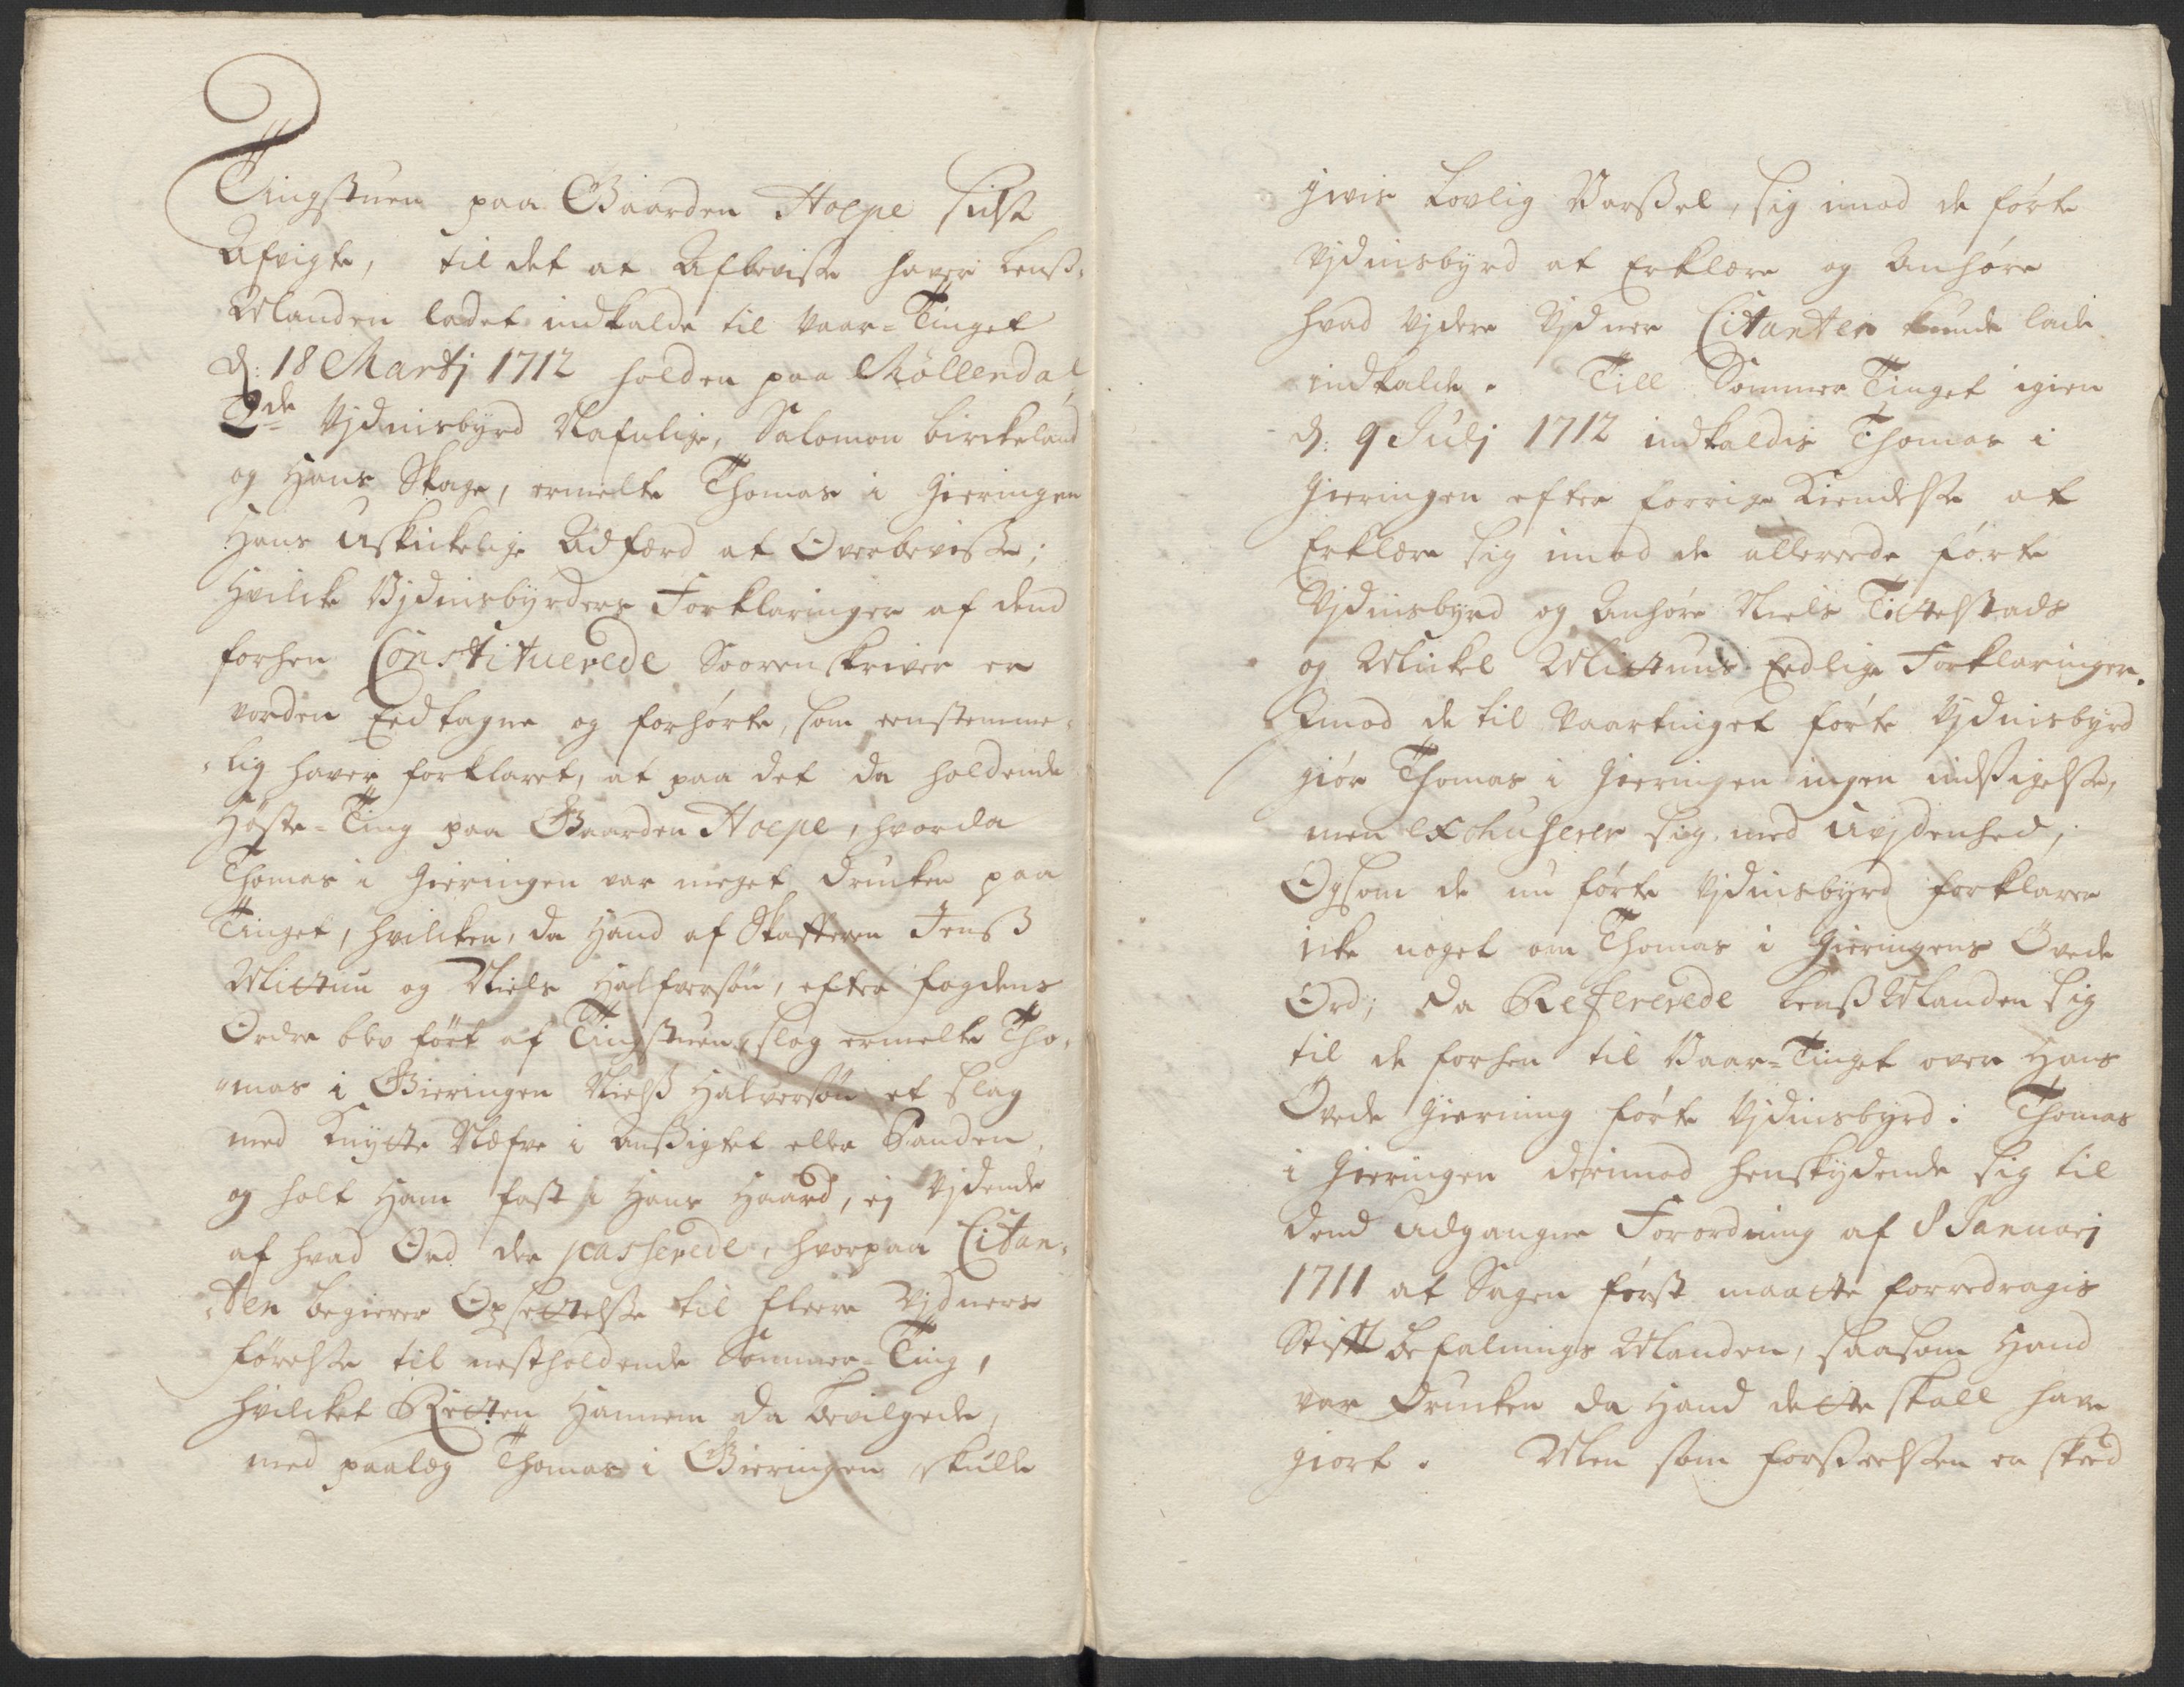 Tingstuen paa Gaarden Hoepe sidst
Afvigte, til det at Afbevise haver Lens-
Manden ladet indkalde til Vaar=Tinget
d: 18 Martj 1712 holden paa Møllendal
2de Vjdnisbyrd Nafnlige, Salomon Birckeland
og Hans Skage, ermelte Thomas i Gieringen
Hans Uskickelige Adfærd at Overbevisse;
Hvilcke Vjdnisbyrders Forklaringer af dend
forhen Constituerede Soorenskriver er
vorden Eedtagne og forhørte, som eenstemme-
-lig haver forklaret, at paa det da holdende
Høste=Ting paa Gaarden Hoepe, hvorda
Thomas i Gieringen var meget drucken paa
Tinget, hvilcken, da Hand af Skafferen Jenss
Mictun og Niels Halfversøn, efter fogdens
Ordre blev ført af Tingstuen, slog ermelte Tho-
-mas i Gieringen Nielss Halversøn et slag
med Knytte Næfve i Ansigtet eller Panden,
og holt Ham fast i Hans Haard, ej Vjdende
af hvad Ord der passerede, hvorpaa Citan-
-ten begierer Opsettelse til fleere Vjdners
førelse til nestholdende Sommer=Ting,
hvilcket Retten Hannem da bevilgede,
med paalæg Thomas i Gieringen skulle
gives Lovlig Varssel, sig imod de førte
Vjdnisbyrd at Erklære og Anhøre
hvad Vjdere Vjdner Citanten kunde lade
indkalde. Till Sommer Tinget igien
d: 9 Julj 1712 indkaldis Thomas i
Gieringen efter forrige Kiendelse at
Erklære sig imod de allereede førte
Vjdnisbyrd og Anhøre Niels Tittelstads
og Mickel Mictuns Eedlige Forklaringer.
Imod de til Vaartinget førte Vjdnisbyrd
giør Thomas i Gieringen ingen indsigelse,
men exchuserer sig med Uvjdenhed;
Ogsom de nu førte Vjdnisbyrd forklarer
icke noget om Thomas i Gieringens Øvede
Ord; da Refererede Lenss Manden sig
til de forhen til Vaar=Tinget over Hans
Øvede Gierning førte Vjdnisbyrd: Thomas
i Gieringen derimod henskydende sig til
dend Udgangne Forordning af 8 Januarj
1711 at Sagen først maatte forredragis
Stifft befalnings Manden, saasom Hand
var Drucken da Hand dette skall have
giort. Men som forseelsen er skeed